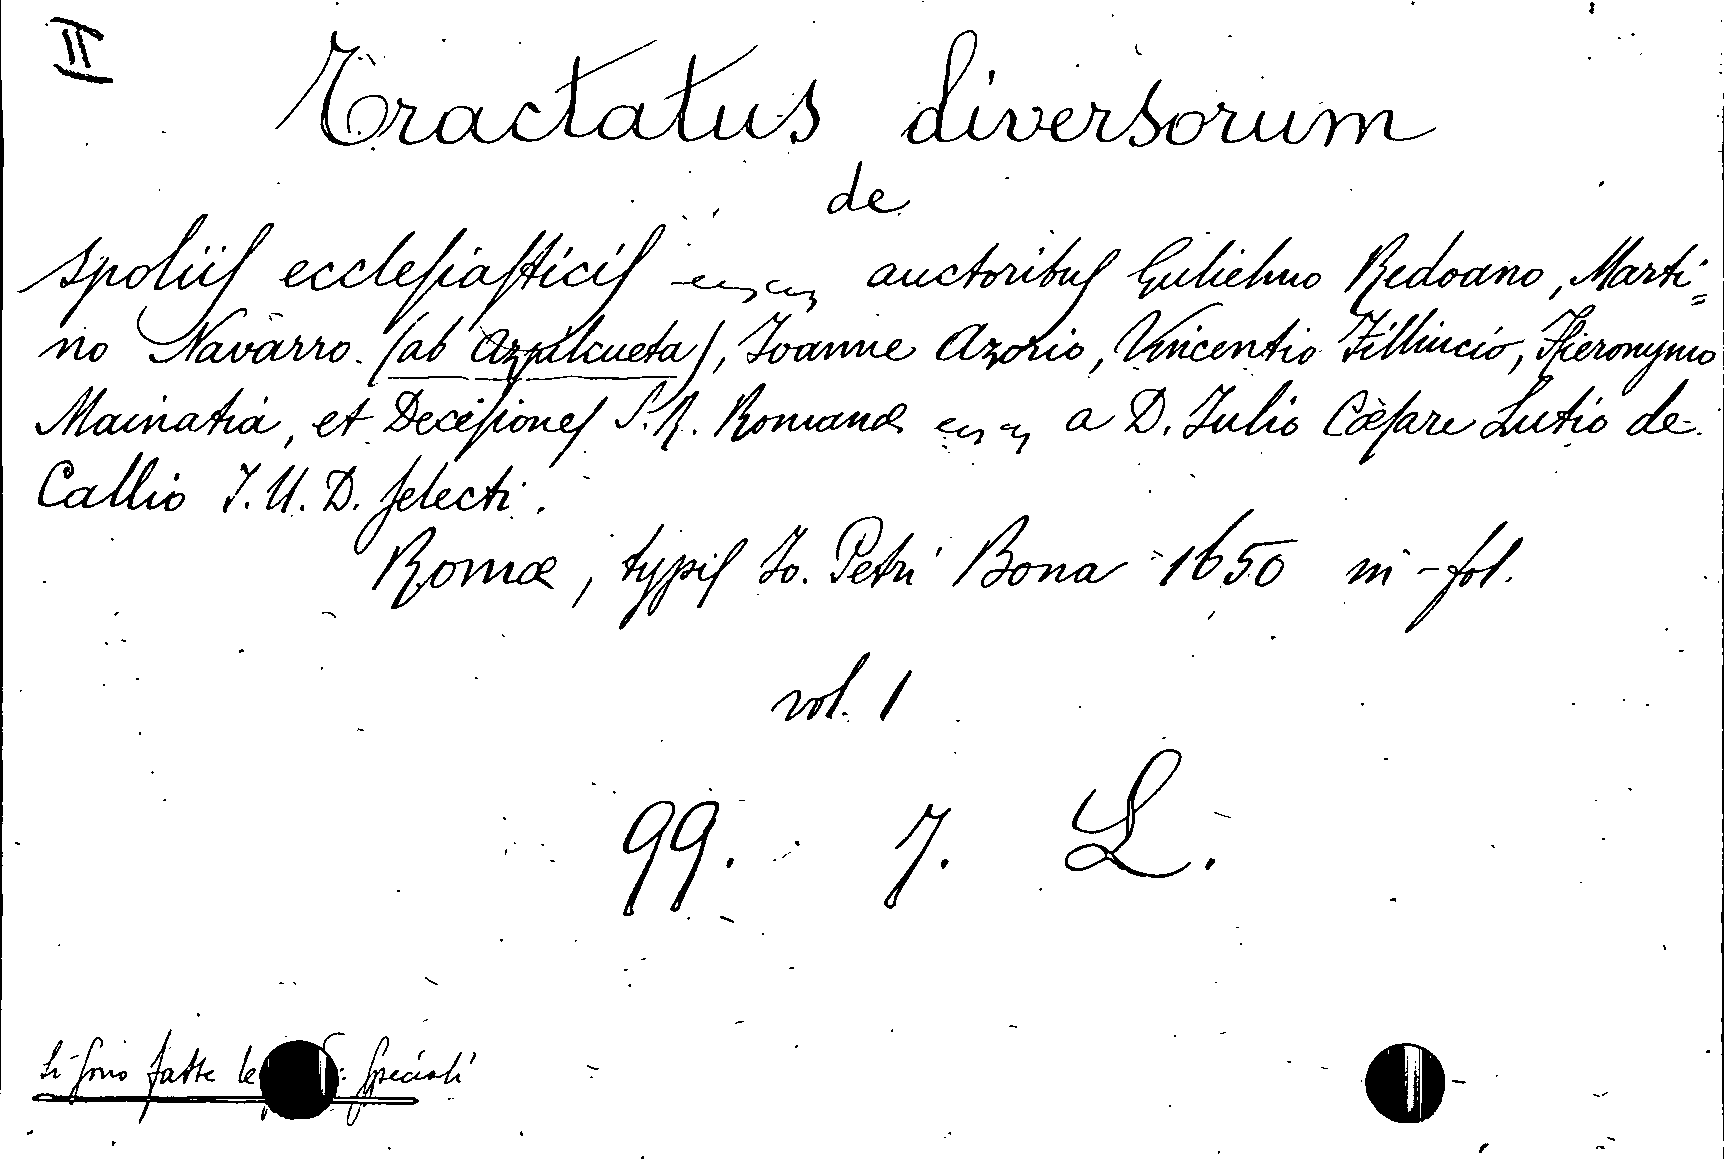 II
Tractatus diversorum
de
spoliis ecclesiasticis auctoribus Gulielmo Redoano, Marti=
no Navarro (ab Azpilcueta), Joanne Azorio, Vincentio Filliucio, Hieronymo
Mainatia, et Decisiones S. R. Romanæ a D. Julio Cæsare Lutio de
Callio J. U. D. selecti.
Romæ, typis Jo. Petri Bona 1650 in-fol.
vol. 1
99. 7. L.
Si sono fatte le speciali